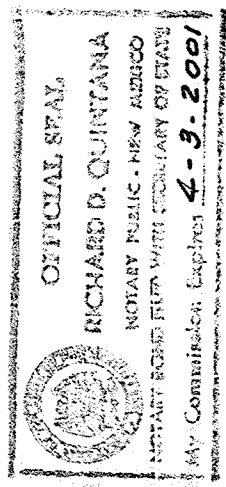 OFFICIAL SEAL
RICHARD D. QUINTANA
NOTARY PUBLIC - NEW MEXICO
NOTARY BOND FILED WITH SECRETARY OF STATE
My Commission Expires 4-3-2001